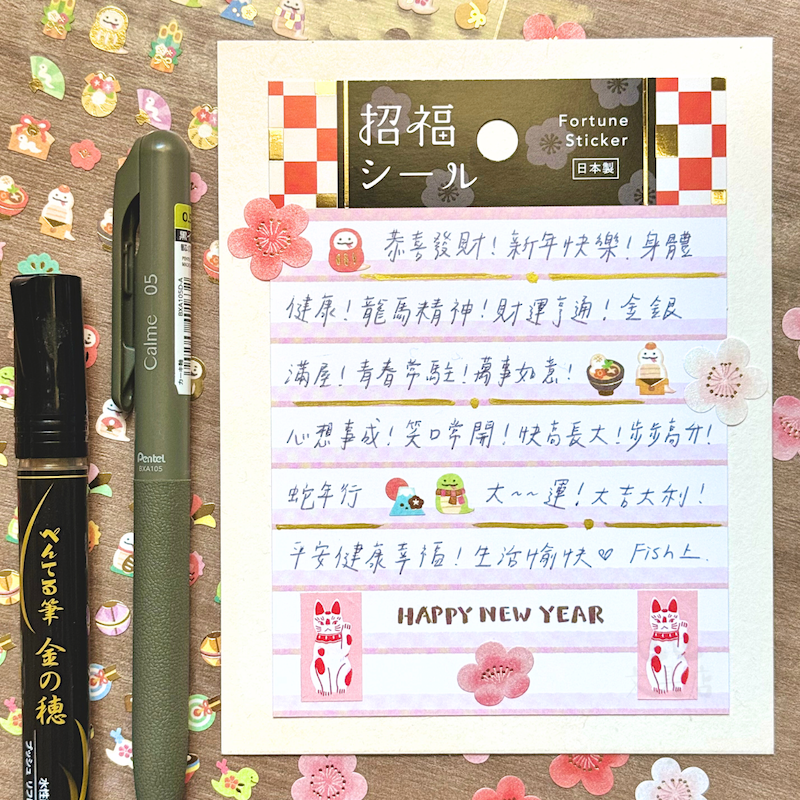 招福
シール
Fortune
Sticker
日本製
恭喜發財！新年快樂！身體
健康！龍馬精神！財運亨通！金銀
滿屋！青春常駐！萬事如意！
心想事成！笑口常開！快高長大！步步高分！
蛇年行 大~~運！大吉大利！
平安健康幸福！生活愉快♡ Fish上.
HAPPY NEW YEAR
Calme 05
Pentel
BXA105
BXA105D-A
ぺんてる筆 金の穂